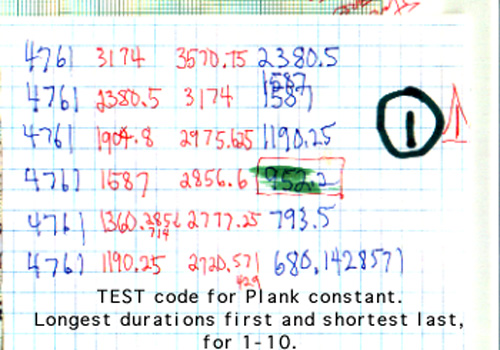 4761 3174 3570.75 2380.5
1587
4761 2380.5 3174 1587
4761 1904.8 2975.625 1190.25
1
4761 1587 2856.6 952.2
4761 1360.2856 2777.25 793.5
714
4761 1190.25 2720.571 680.1428571
429
TEST code for Plank constant.
Longest durations first and shortest last,
for 1-10.